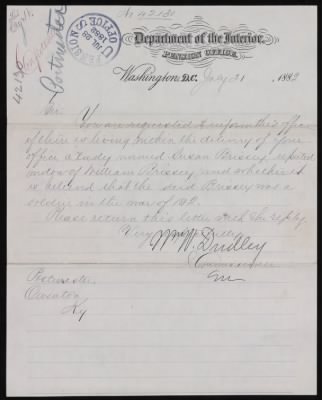 No 42130
Department of the Interior,
PENSION OFFICE,
Washington, D.C. July 21, 1883
42130
Postmaster
U.S. PENSION OFFICE
JUL 28
Sir:
You are requested to inform this office
if there is living within the delivery of your
office a lady named Susan Brissey, reputed
widow of William Brissey, and whether it
is believed that the said Brissey was a
soldier in the war of 1812.
Please return this letter with the reply.
Very
W. W. Dudley
Commissioner
Postmaster,
Ky